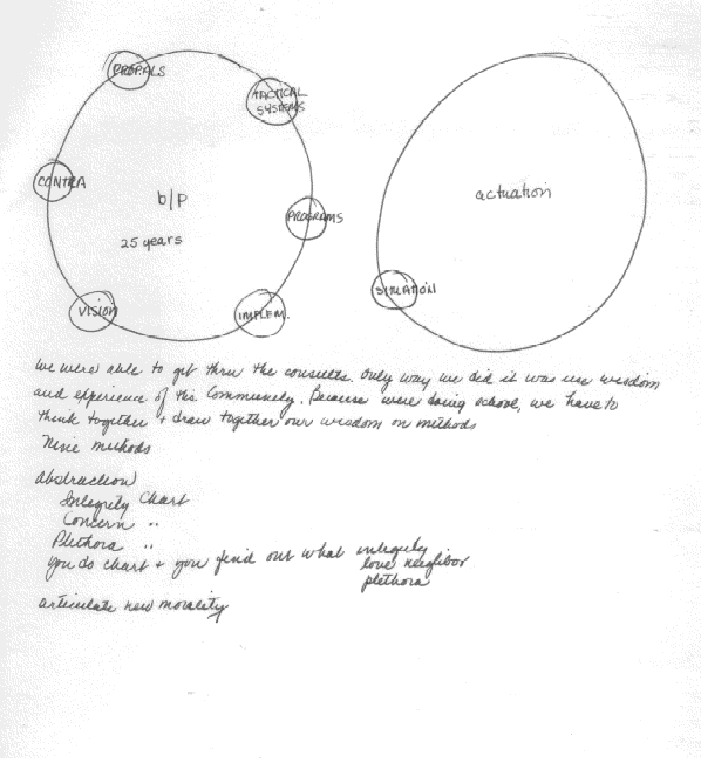 PROPALS
TACTICAL
SYSTEMS
CONTRA
b/p
25 years
PROGRAMS
VISION
IMPLEM.
actuation
SITUATION
We were able to get thru the consults. Only way we did it was use wisdom
and experience of this Community. Because were doing school, we have to
think together + draw together our wisdom on methods
methods
abstraction
Integrity Chart
Concern "
Plethora "
You do chart + you find out what integrity
love neighbor
plethora
articulate new morality